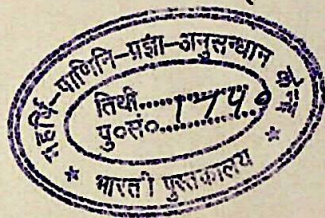 महर्षि-पाणिनि-प्रज्ञा-अनुसन्धान
तिथी..........
पु०सं० 1740
* भारती पुस्तकालय *